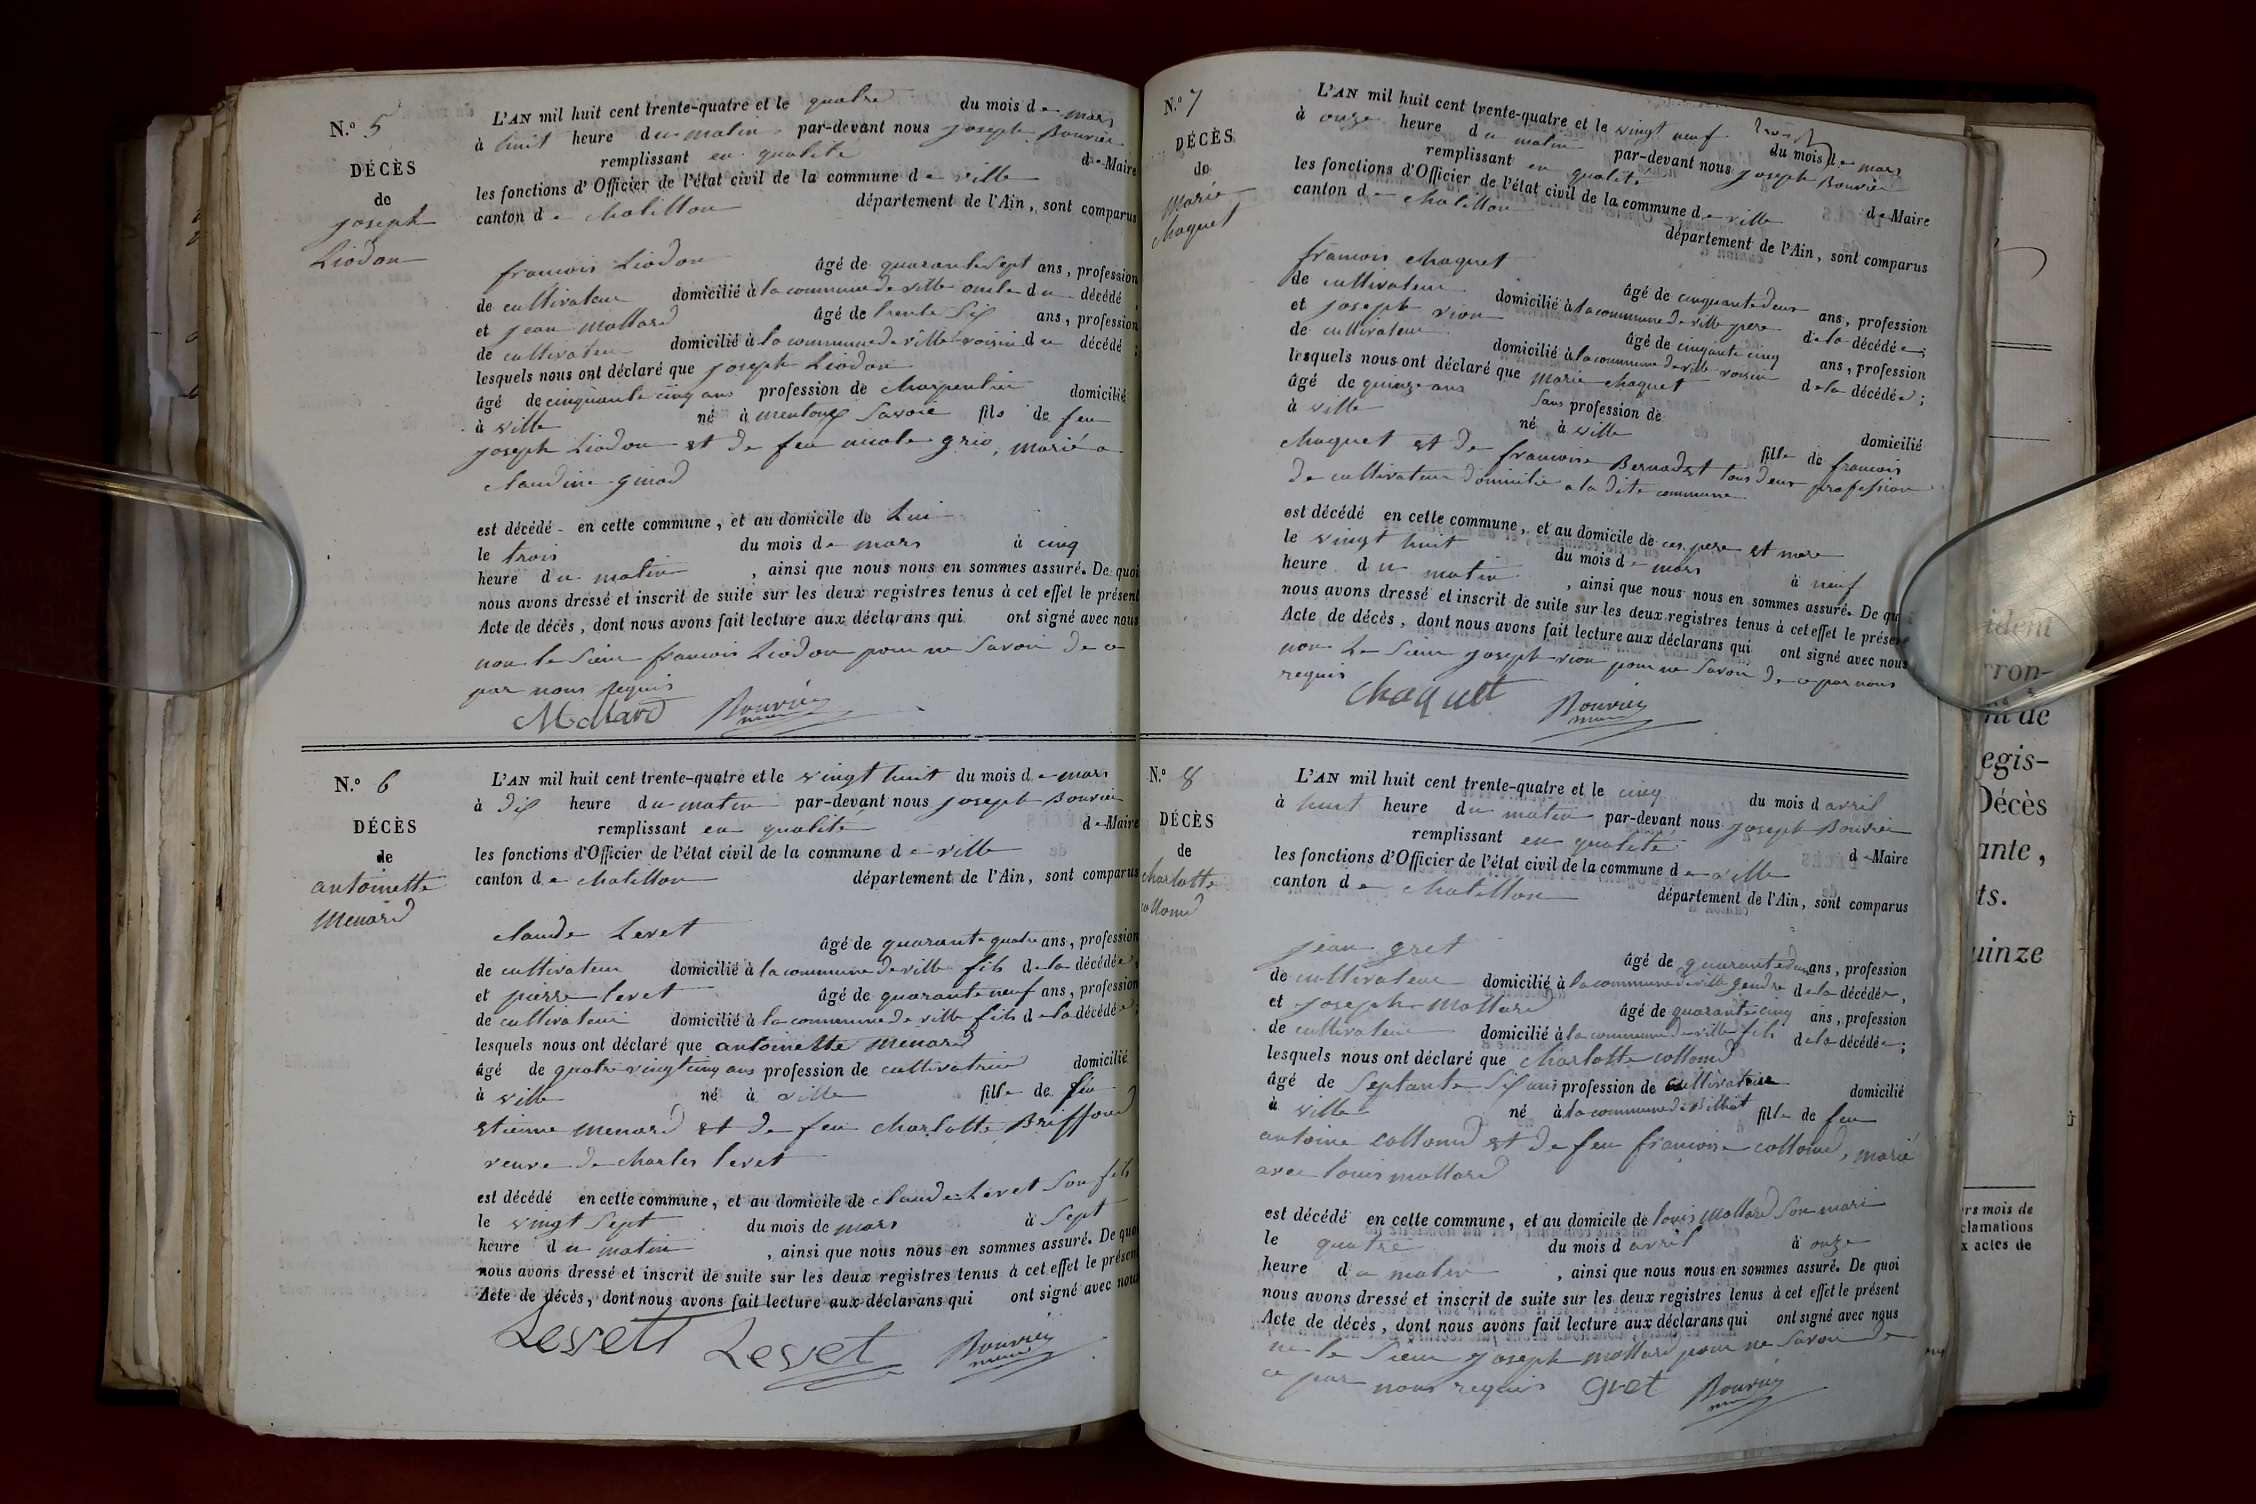 N.º 5
DÉCÈS
de
joseph
Liodon
L'AN mil huit cent trente-quatre et le quatre du mois de mars
à huit heure du matin par-devant nous joseph Bouvier
remplissant en qualité de Maire
les fonctions d'Officier de l'état civil de la commune de ville
canton de chatillon département de l'Ain, sont comparus
francois Liodon âgé de quarante sept ans, profession
de cultivateur domicilié à la commune de ville oncle du décédé
et jean mollard âgé de trente six ans, profession
de cultivateur domicilié à la commune de ville voisin du décédé;
lesquels nous ont déclaré que joseph Liodon
âgé de cinquante cinq ans profession de charpentier domicilié
à ville né à Savoie fils de feu
joseph Liodon et de feu nicole grio, marié a
claudine ginod
est décédé en cette commune, et au domicile de Lui
le trois du mois de mars à cinq
heure du matin, ainsi que nous nous en sommes assuré. De quoi
nous avons dressé et inscrit de suite sur les deux registres tenus à cet effet le présent
Acte de décès, dont nous avons fait lecture aux déclarans qui ont signé avec nous
non le Sieur francois Liodon pour ne Savoir de ce
par nous Requis
Mollard Bouvier
maire
N.º 6
DÉCÈS
de
antoinette
Menard
L'AN mil huit cent trente-quatre et le vingt huit du mois de mars
à dix heure du matin par-devant nous joseph Bouvier
remplissant en qualité de Maire
les fonctions d'Officier de l'état civil de la commune de ville
canton de chatillon département de l'Ain, sont comparus
claude Levet âgé de quarante quatre ans, profession
de cultivateur domicilié à la commune de ville fils de la décédée,
et pierre levet âgé de quarante neuf ans, profession
de cultivateur domicilié à la commune de ville fils de la décédée;
lesquels nous ont déclaré que antoinette Menard
âgé de quatre vingt cinq ans profession de cultivatrice domicilié
à ville né à ville fille de feu
etienne menard et de feu charlotte Briffoud
veuve de charles levet
est décédé en cette commune, et au domicile de claude Levet Son fils
le vingt Sept du mois de mars à Sept
heure du matin, ainsi que nous nous en sommes assuré. De quoi
nous avons dressé et inscrit de suite sur les deux registres tenus à cet effet le présent
Acte de décès, dont nous avons fait lecture aux déclarans qui ont signé avec nous
Levett Levet Bouvier
maire
N.º 7
DÉCÈS
de
Marie
chaquet
L'AN mil huit cent trente-quatre et le vingt neuf du mois de mars
à onze heure du matin par-devant nous joseph Bouvier
remplissant en qualité de Maire
les fonctions d'Officier de l'état civil de la commune de ville
canton de chatillon département de l'Ain, sont comparus
francois chaquet âgé de cinquante deux ans, profession
de cultivateur domicilié à la commune de ville pere de la décédée;
et joseph rion âgé de cinquante cinq ans, profession
de cultivateur domicilié à la commune de ville voisin de la décédée;
lesquels nous ont déclaré que Marie chaquet
âgé de quinze ans Sans profession de domicilié
à ville né à ville fille de francois
chaquet et de francoise Bernadet tous deux profession
de cultivateur domicilié a la dite commune
est décédé en cette commune, et au domicile de ces pere et mere
le vingt huit du mois de mars à neuf
heure du matin, ainsi que nous nous en sommes assuré. De qu
nous avons dressé et inscrit de suite sur les deux registres tenus à cet effet le présent
Acte de décès, dont nous avons fait lecture aux déclarans qui ont signé avec nous
non Le Sieur joseph rion pour ne Savoir de ce par nous
requis
chaquet Bouvier
maire
N.º 8
DÉCÈS
de
charlotte
collomd
L'AN mil huit cent trente-quatre et le cinq du mois d avril
à huit heure du matin par-devant nous joseph Bouvier
remplissant en qualité de Maire
les fonctions d'Officier de l'état civil de la commune de ville
canton de chatillon département de l'Ain, sont comparus
jean gret âgé de quarante deux ans, profession
de cultivateur domicilié à la commune de ville gendre de la décédée,
et joseph Mollard âgé de quarante cinq ans, profession
de cultivateur domicilié à la commune de ville fils de la décédée;
lesquels nous ont déclaré que charlotte collomd
âgé de Septante Six ans profession de cultivatrice domicilié
à ville né à la commune de Billiat fille de feu
antoine collomd et de feu francoise collomd, marié
avec louis mollard
est décédé en cette commune, et au domicile de louis Mollard Son mari
le quatre du mois d avril à onze
heure du matin, ainsi que nous nous en sommes assuré. De quoi
nous avons dressé et inscrit de suite sur les deux registres tenus à cet effet le présent
Acte de décès, dont nous avons fait lecture aux déclarans qui ont signé avec nous
ne le Sieur joseph mollard pour ne Savoir de
ce par nous requis gret Bouvier
maire
ident
rron-
nt de
egis-
Décès
ante,
ts.
uinze
rs mois de
clamations
x actes de